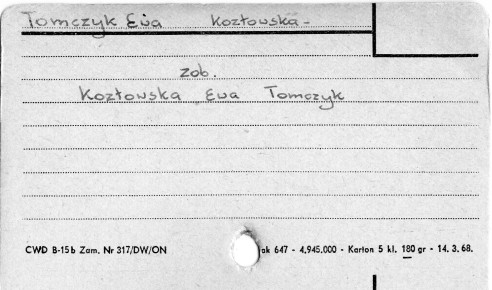 Tomczyk Ewa Kozłowska-
zob.
Kozłowska Ewa Tomczyk
CWD B-15b Zam. Nr 317/DW/ON ak 647 - 4.945.000 - Karton 5 kl. 180 gr - 14. 3. 68.